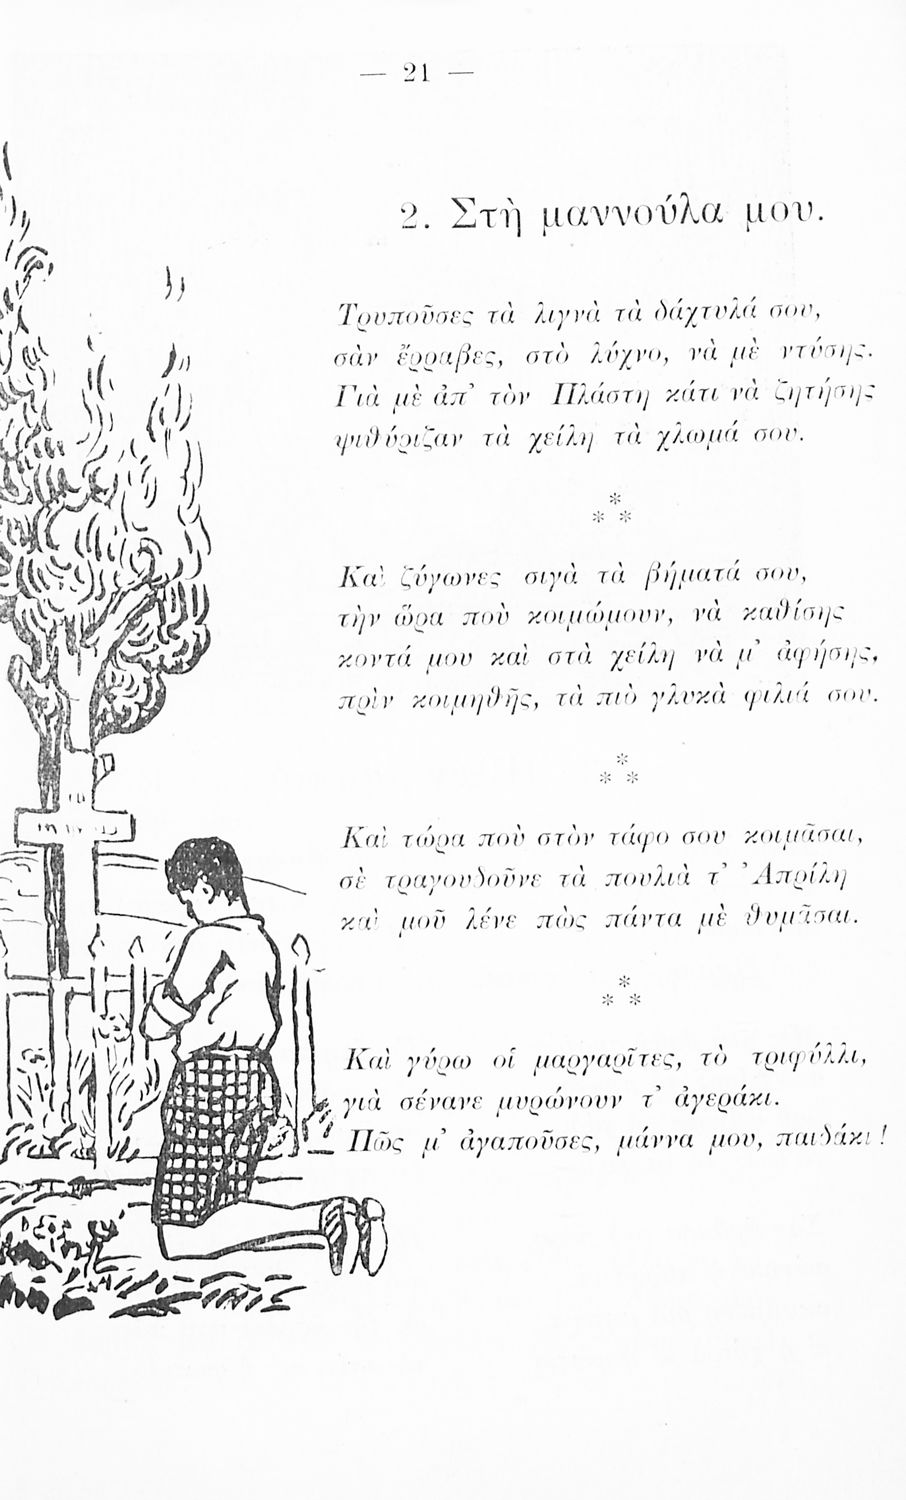 — 21 —
2. Στὴ μαννούλα μου.
Τρυποῦσες τὰ λιγνὰ τὰ δάχτυλά σου,
σὰν ἔρραβες, στὸ λύχνο, νὰ μὲ ντύσῃς.
Γιὰ μὲ ἀπ' τὸν Πλάστη κάτι νὰ ζητήσῃς
ψιθύριζαν τὰ χείλη τὰ χλωμά σου.
* * *
Καὶ ζύγωνες σιγὰ τὰ βήματά σου,
τὴν ὥρα ποὺ κοιμώμουν, νὰ καθίσῃς
κοντά μου καὶ στὰ χείλη νὰ μ' ἀφήσῃς,
πρὶν κοιμηθῇς, τὰ πιὸ γλυκὰ φιλιά σου.
* * *
Καὶ τώρα ποὺ στὸν τάφο σου κοιμᾶσαι,
σὲ τραγουδοῦνε τὰ πουλιὰ τ' Ἀπρίλη
καὶ μοῦ λένε πὼς πάντα μὲ θυμᾶσαι.
* * *
Καὶ γύρω οἱ μαργαρῖτες, τὸ τριφύλλι,
γιὰ σένανε μυρώνουν τ' ἀγεράκι.
Πῶς μ' ἀγαποῦσες, μάννα μου, παιδάκι!